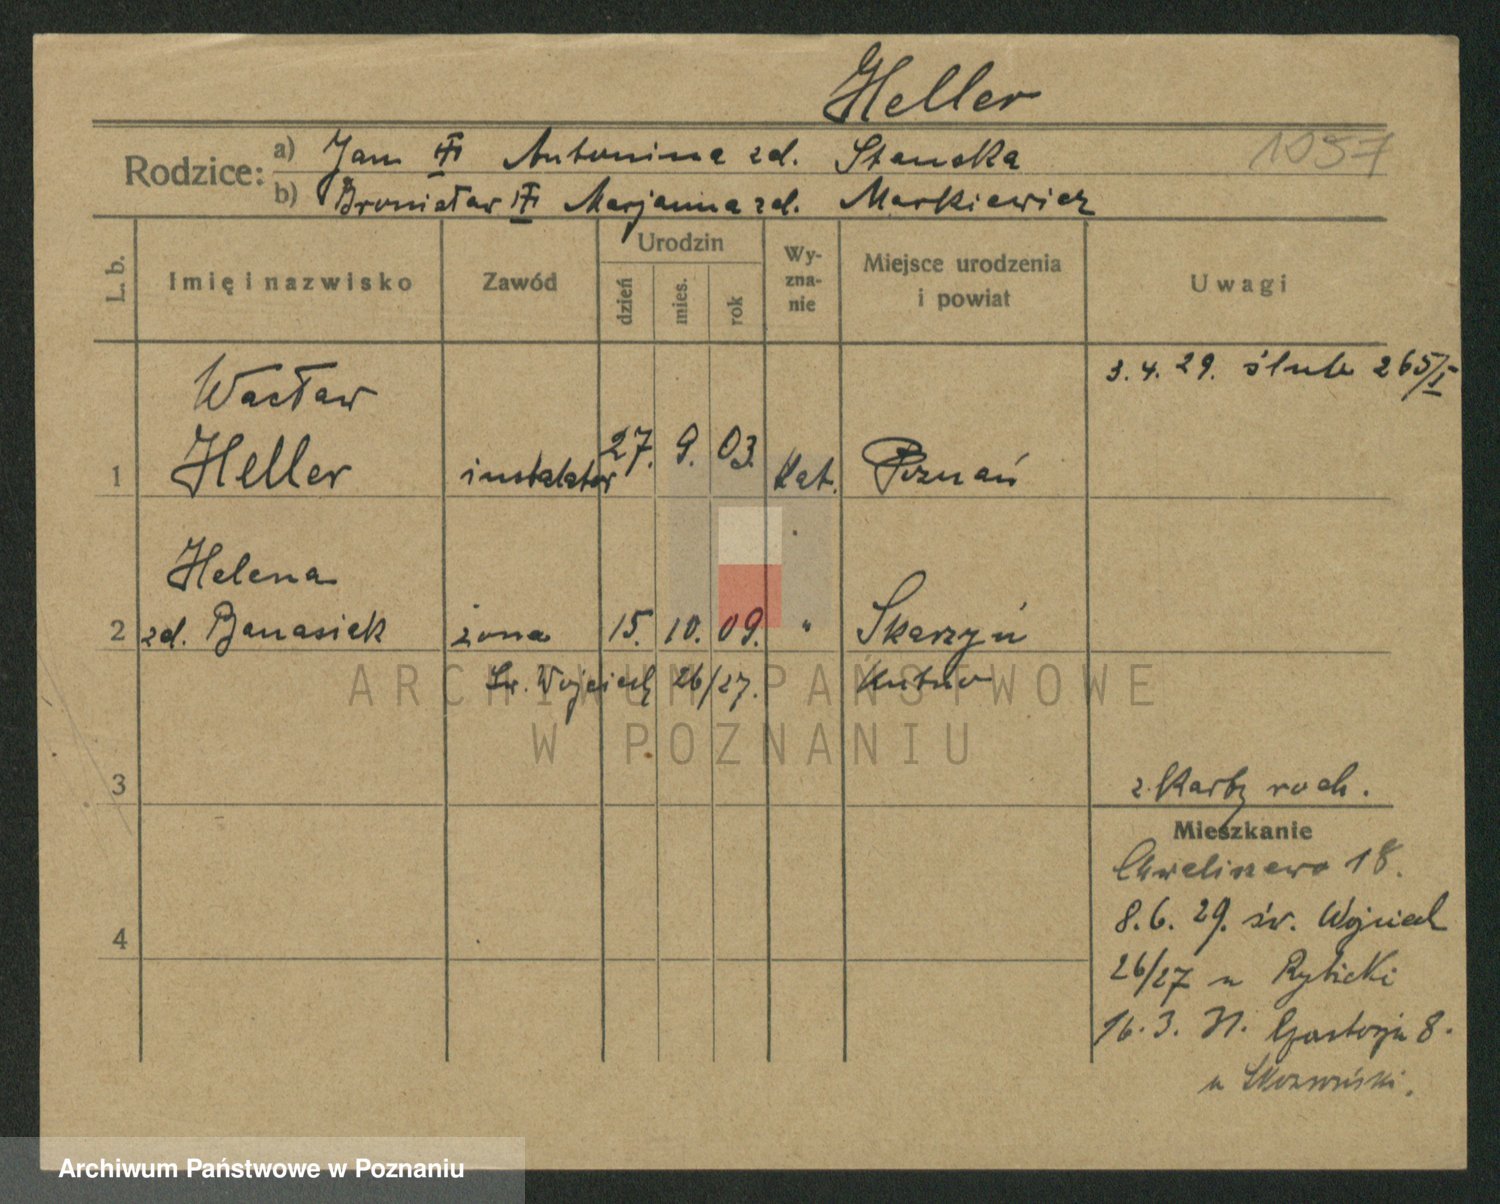 Heller
1057
Rodzice: a) Jan Antonina zd. Stauska
b) Bronisław Marjanna zd. Markiewicz
L. b. Imię i nazwisko Zawód Urodzin dzień mies. rok Wyznanie Miejsce urodzenia i powiat Uwagi
3. 4. 29. ślub 265/I
Wacław
1 Heller instalator 27. 9. 03. kat. Poznań
Helena
2 zd. Banasiak żona 15. 10. 09. " Skarzyń
Św. Wojciech 26/27. Kutno
ARCHIWUM PAŃSTWOWE
W POZNANIU
3 z Karty rodz.
Mieszkanie
Chwaliszewo 18.
8. 6. 29. św. Wojciech
4
26/27 u Rybicki
16. 3. 31. 8.
u
Archiwum Państwowe w Poznaniu